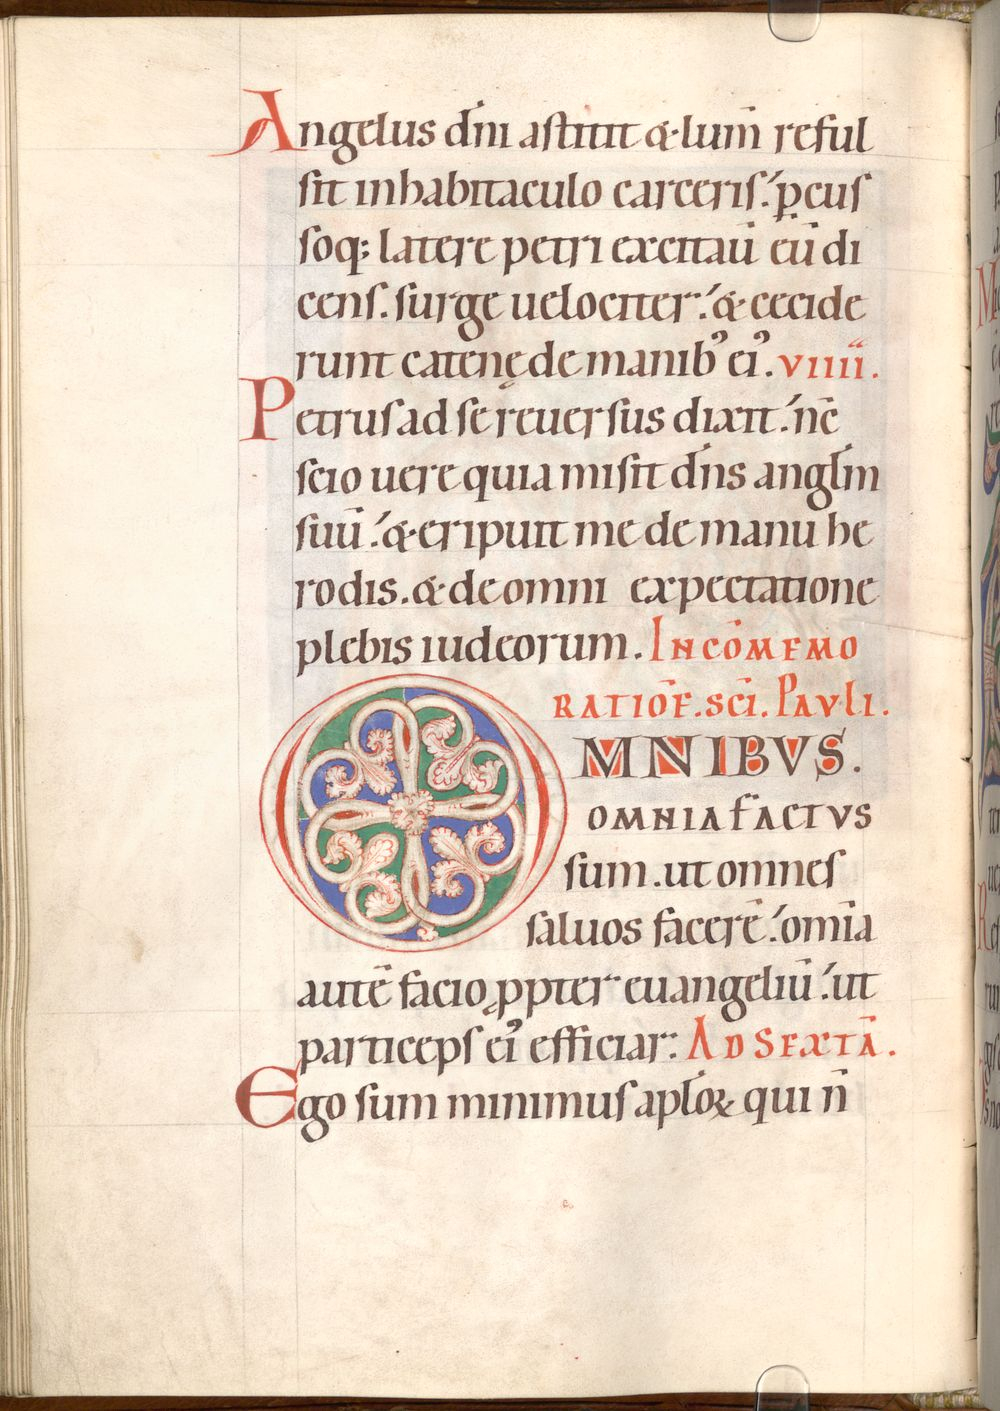 Angelus dn̄i astitit & lum̄ reful
sit inhabitaculo carceris. p̱cus
soq; latere petri excitaū eū di
cens. surge uelociter. & cecide
runt catenę de manibꝰ eiꝰ. VIIII.
Petrus ad se reuersus dixit. nc̄
scio uere quia misit dn̄s angl̄m
suū. & eripuit me de manu he
rodis. & de omni expectatione
plebis iudeorum. INCŌMEMO
RATIŌE. SCĪ. PAVLI.
OMNIBVS.
OMNIA FACTVS
sum. ut omnes
saluos facerē. om̄ia
autē facio ꝓpter euangeliū. ut
particeps eiꝰ efficiar: AD SEXTĀ.
Ego sum minimus apl̄oꝝ qui n̄